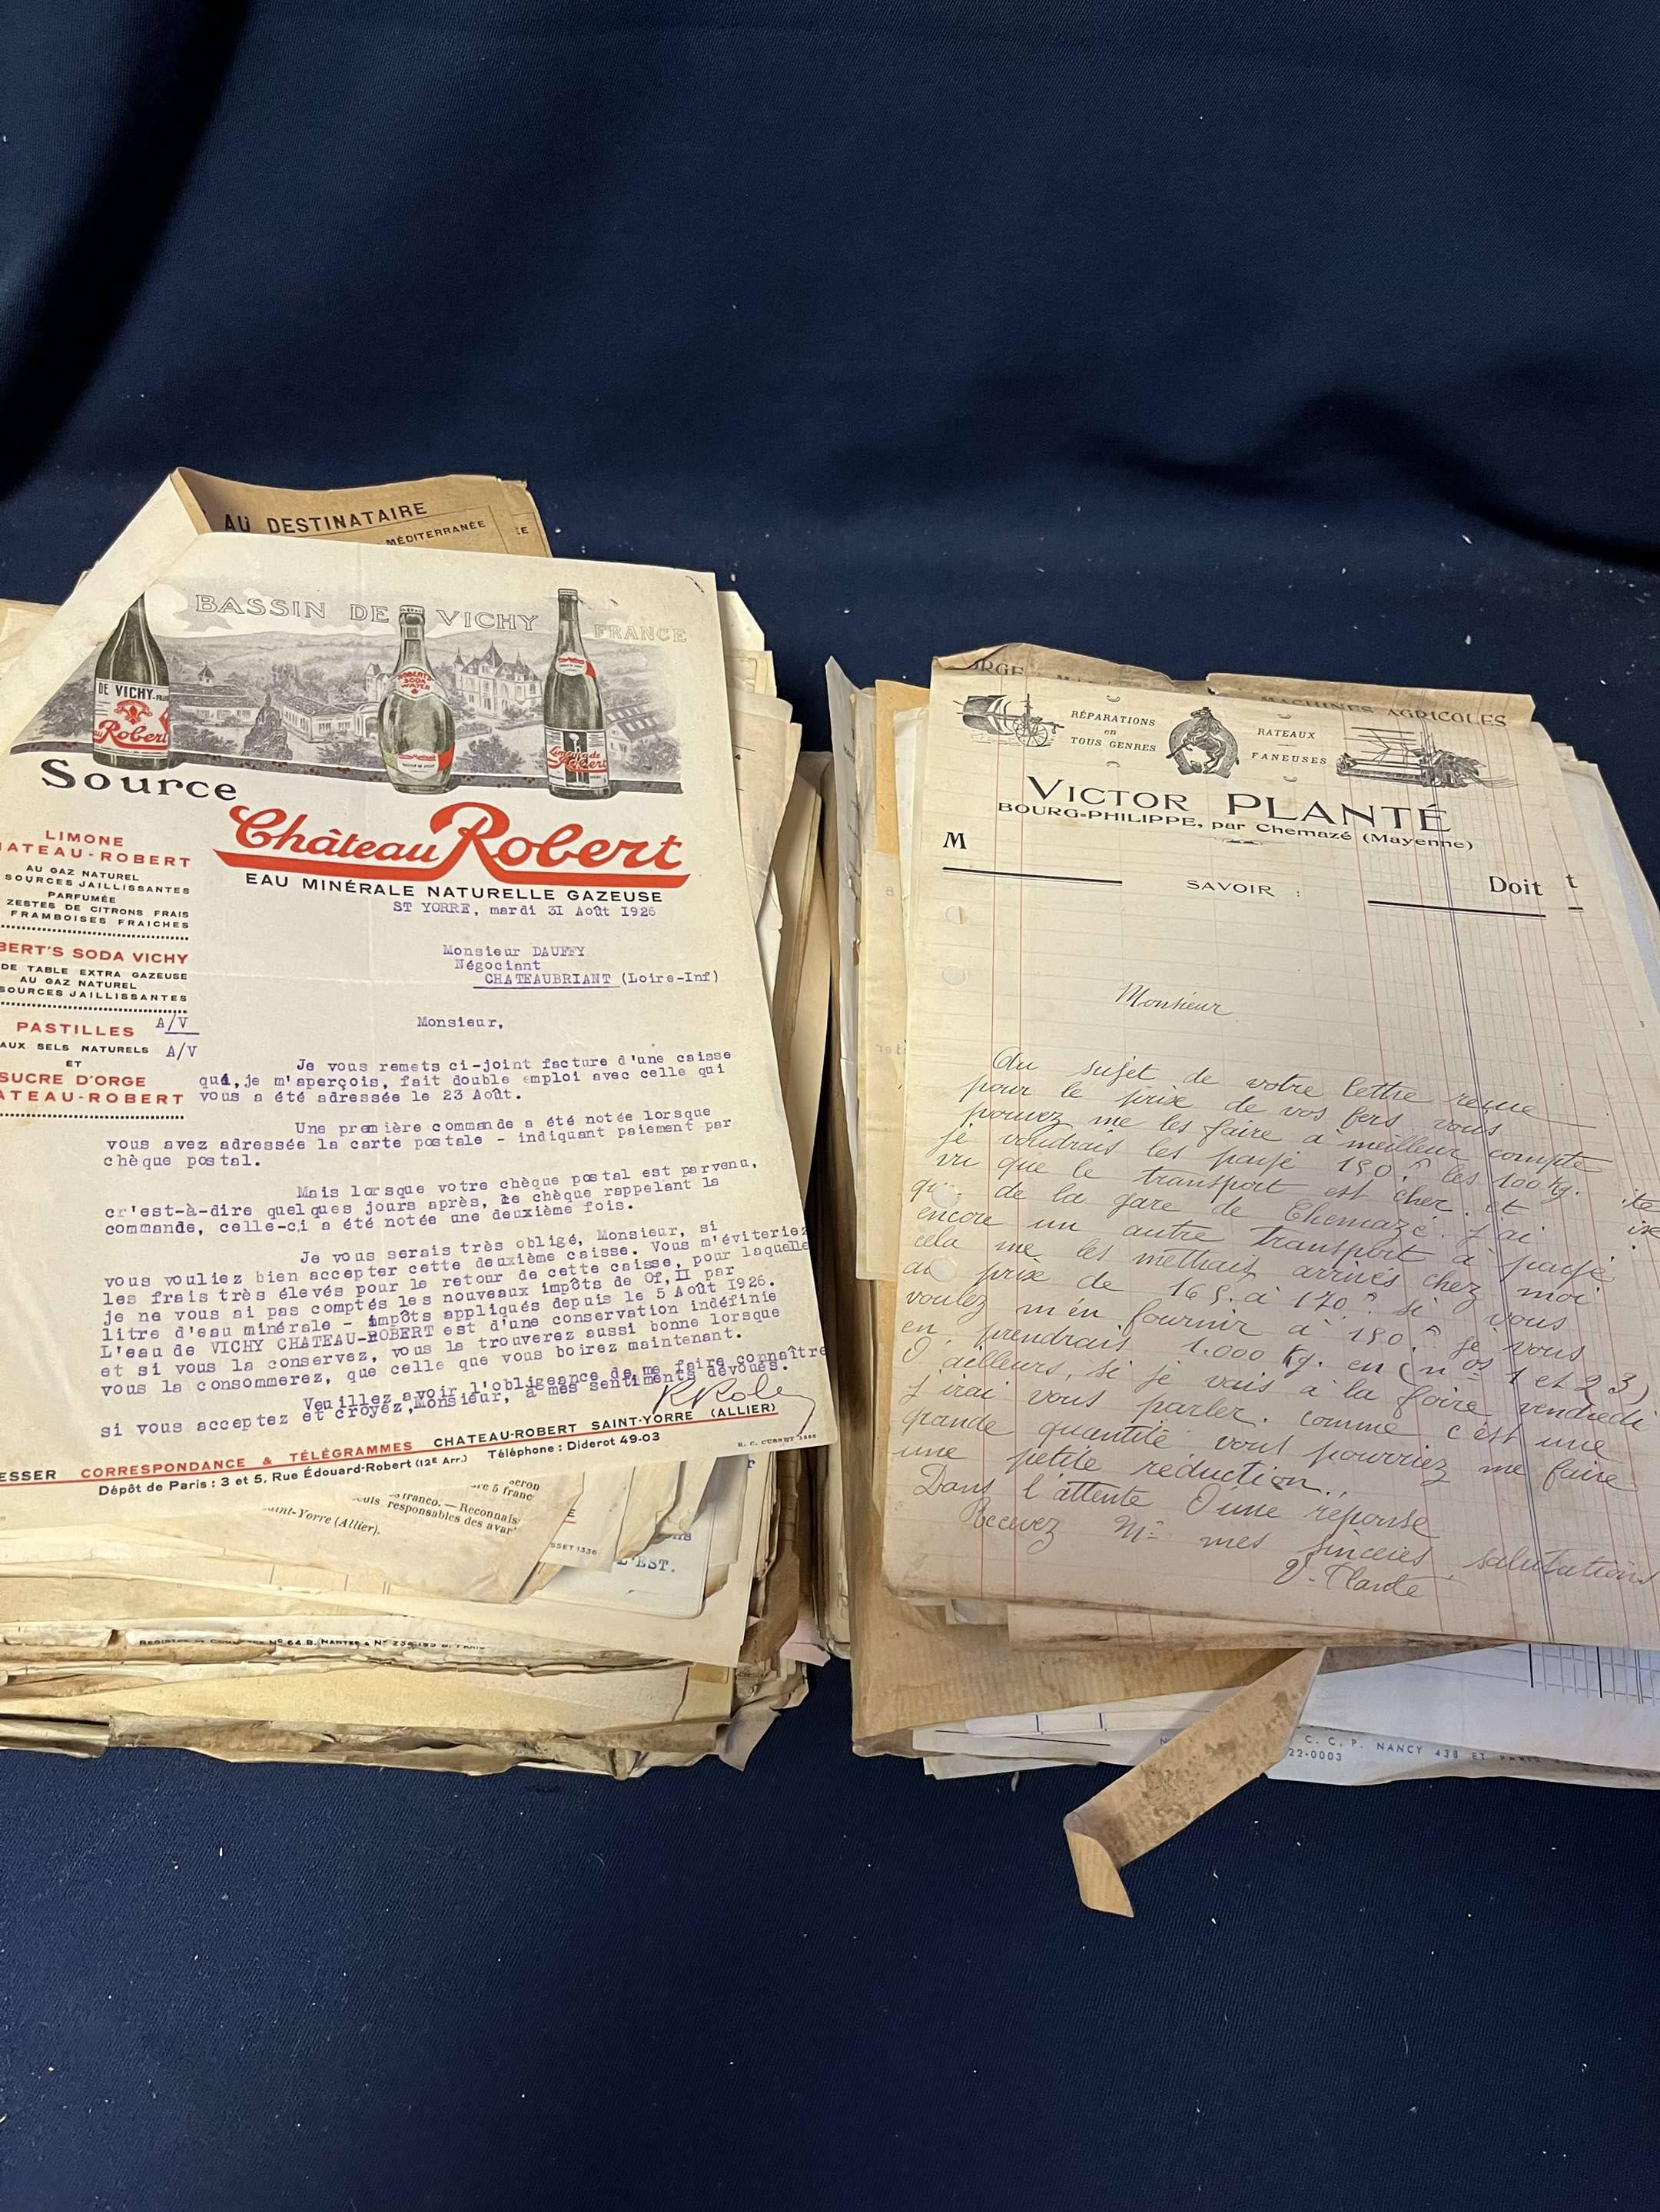 AU DESTINATAIRE
MÉDITERRANÉE
BASSIN DE VICHY
FRANCE
DE VICHY
Robert
ROBERT'S
SODA
WATER
Limonade
Source
Château Robert
EAU MINÉRALE NATURELLE GAZEUSE
LIMONE
ATEAU-ROBERT
AU GAZ NATUREL
SOURCES JAILLISSANTES
PARFUMÉE
ZESTES DE CITRONS FRAIS
FRAMBOISES FRAICHES
BERT'S SODA VICHY
DE TABLE EXTRA GAZEUSE
AU GAZ NATUREL
SOURCES JAILLISSANTES
PASTILLES
AUX SELS NATURELS
ET
SUCRE D'ORGE
ATEAU-ROBERT
A/V
A/V
ST YORRE, mardi 3I Août I926
Monsieur DAUFFY
Négociant
CHATEAUBRIANT (Loire-Inf)
Monsieur,
Je vous remets ci-joint facture d'une caisse
qui, je m'aperçois, fait double emploi avec celle qui
vous a été adressée le 23 Août.
Une première commande a été notée lorsque
vous avez adressée la carte postale - indiquant paiement par
chèque postal.
Mais lorsque votre chèque postal est parvenu,
cr'est-à-dire quelques jours après, le chèque rappelant la
commande, celle-ci a été notée une deuxième fois.
Je vous serais très obligé, Monsieur, si
vous vouliez bien accepter cette deuxième caisse. Vous m'éviteriez
les frais très élevés pour le retour de cette caisse, pour laquelle
je ne vous ai pas comptés les nouveaux impôts de Of,II par
litre d'eau minérale - impôts appliqués depuis le 5 Août I926.
L'eau de VICHY CHATEAU-ROBERT est d'une conservation indéfinie
et si vous la conservez, vous la trouverez aussi bonne lorsque
vous la consommerez, que celle que vous boirez maintenant.
Veuillez avoir l'obligeance de me faire connaître
si vous acceptez et croyez, Monsieur, à mes sentiments dévoués.
ESSER CORRESPONDANCE & TÉLÉGRAMMES CHATEAU-ROBERT SAINT-YORRE (ALLIER)
Dépôt de Paris : 3 et 5, Rue Édouard-Robert (12E Arr.) Téléphone : Diderot 49-03
R. C. CUSSET 1366
seron
re 5 franc
franco. — Reconnais
responsables des avar
aint-Yorre (Allier).
SSET 1336
L'EST.
MACHINES AGRICOLES
RÉPARATIONS
en
TOUS GENRES
RATEAUX
FANEUSES
VICTOR PLANTÉ
BOURG-PHILIPPE, par Chemazé (Mayenne)
M
Doit
t
SAVOIR :
Monsieur
Au sujet de votre lettre reçue
pour le prix de vos fers vous
pouvez me les faire a meilleur compte
je voudrais les payé 150 f les 100 Kg.
vu que le transport est cher. et
que de la gare de Chemazé. j'ai
encore un autre transport à payé
cela me les mettrais arrivés chez moi
au prix de 165. à 170 f si vous
voulez m'en fournir à 150 f je vous
en prendrais 1.000 Kg. en (nos 1 et 2 3)
D'ailleurs, si je vais à la foire vendredi
j'irai vous parler. comme c'est une
grande quantité vous pourriez me faire
une petite réduction.
Dans l'attente d'une réponse
Recevez Mr mes sincères salutations
V. Planté
C. C. P. NANCY 438 ET PARIS
22-0003